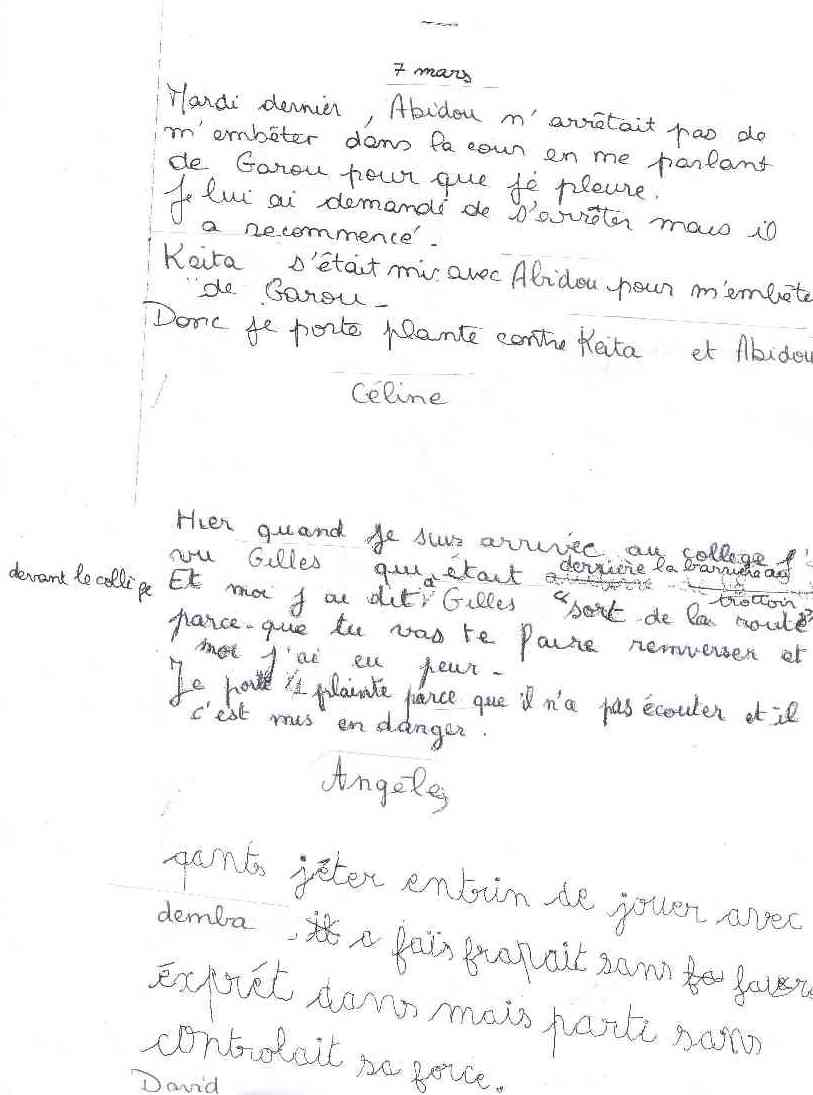 7 mars
Mardi dernier, Abidou n'arrêtait pas de
m'embêter dans la cour en me parlant
de Garou pour que jé pleure.
Je lui ai demandé de s'arrêter mais il
a recommencé.
Keita s'était mis avec Abidou pour m'embête
de Garou -
Donc je porte plante contre Keita et Abidou
Céline
Hier quand je suis arrivée au collège j'
vu Gilles qui était derrière la barrière au
devant le collège Et moi j'ai dit à Gilles "sort de la route"
trottoir
parce-que tu vas te faire remverser et
moi j'ai eu peur -
Je porte plainte parce que il n'a pas écouter et il
c'est mis en danger.
Angèle
qants jéter entrin de jouer avec
demba, a fais frapait sans
exprét dans mais parti sans
controlait sa force.
David